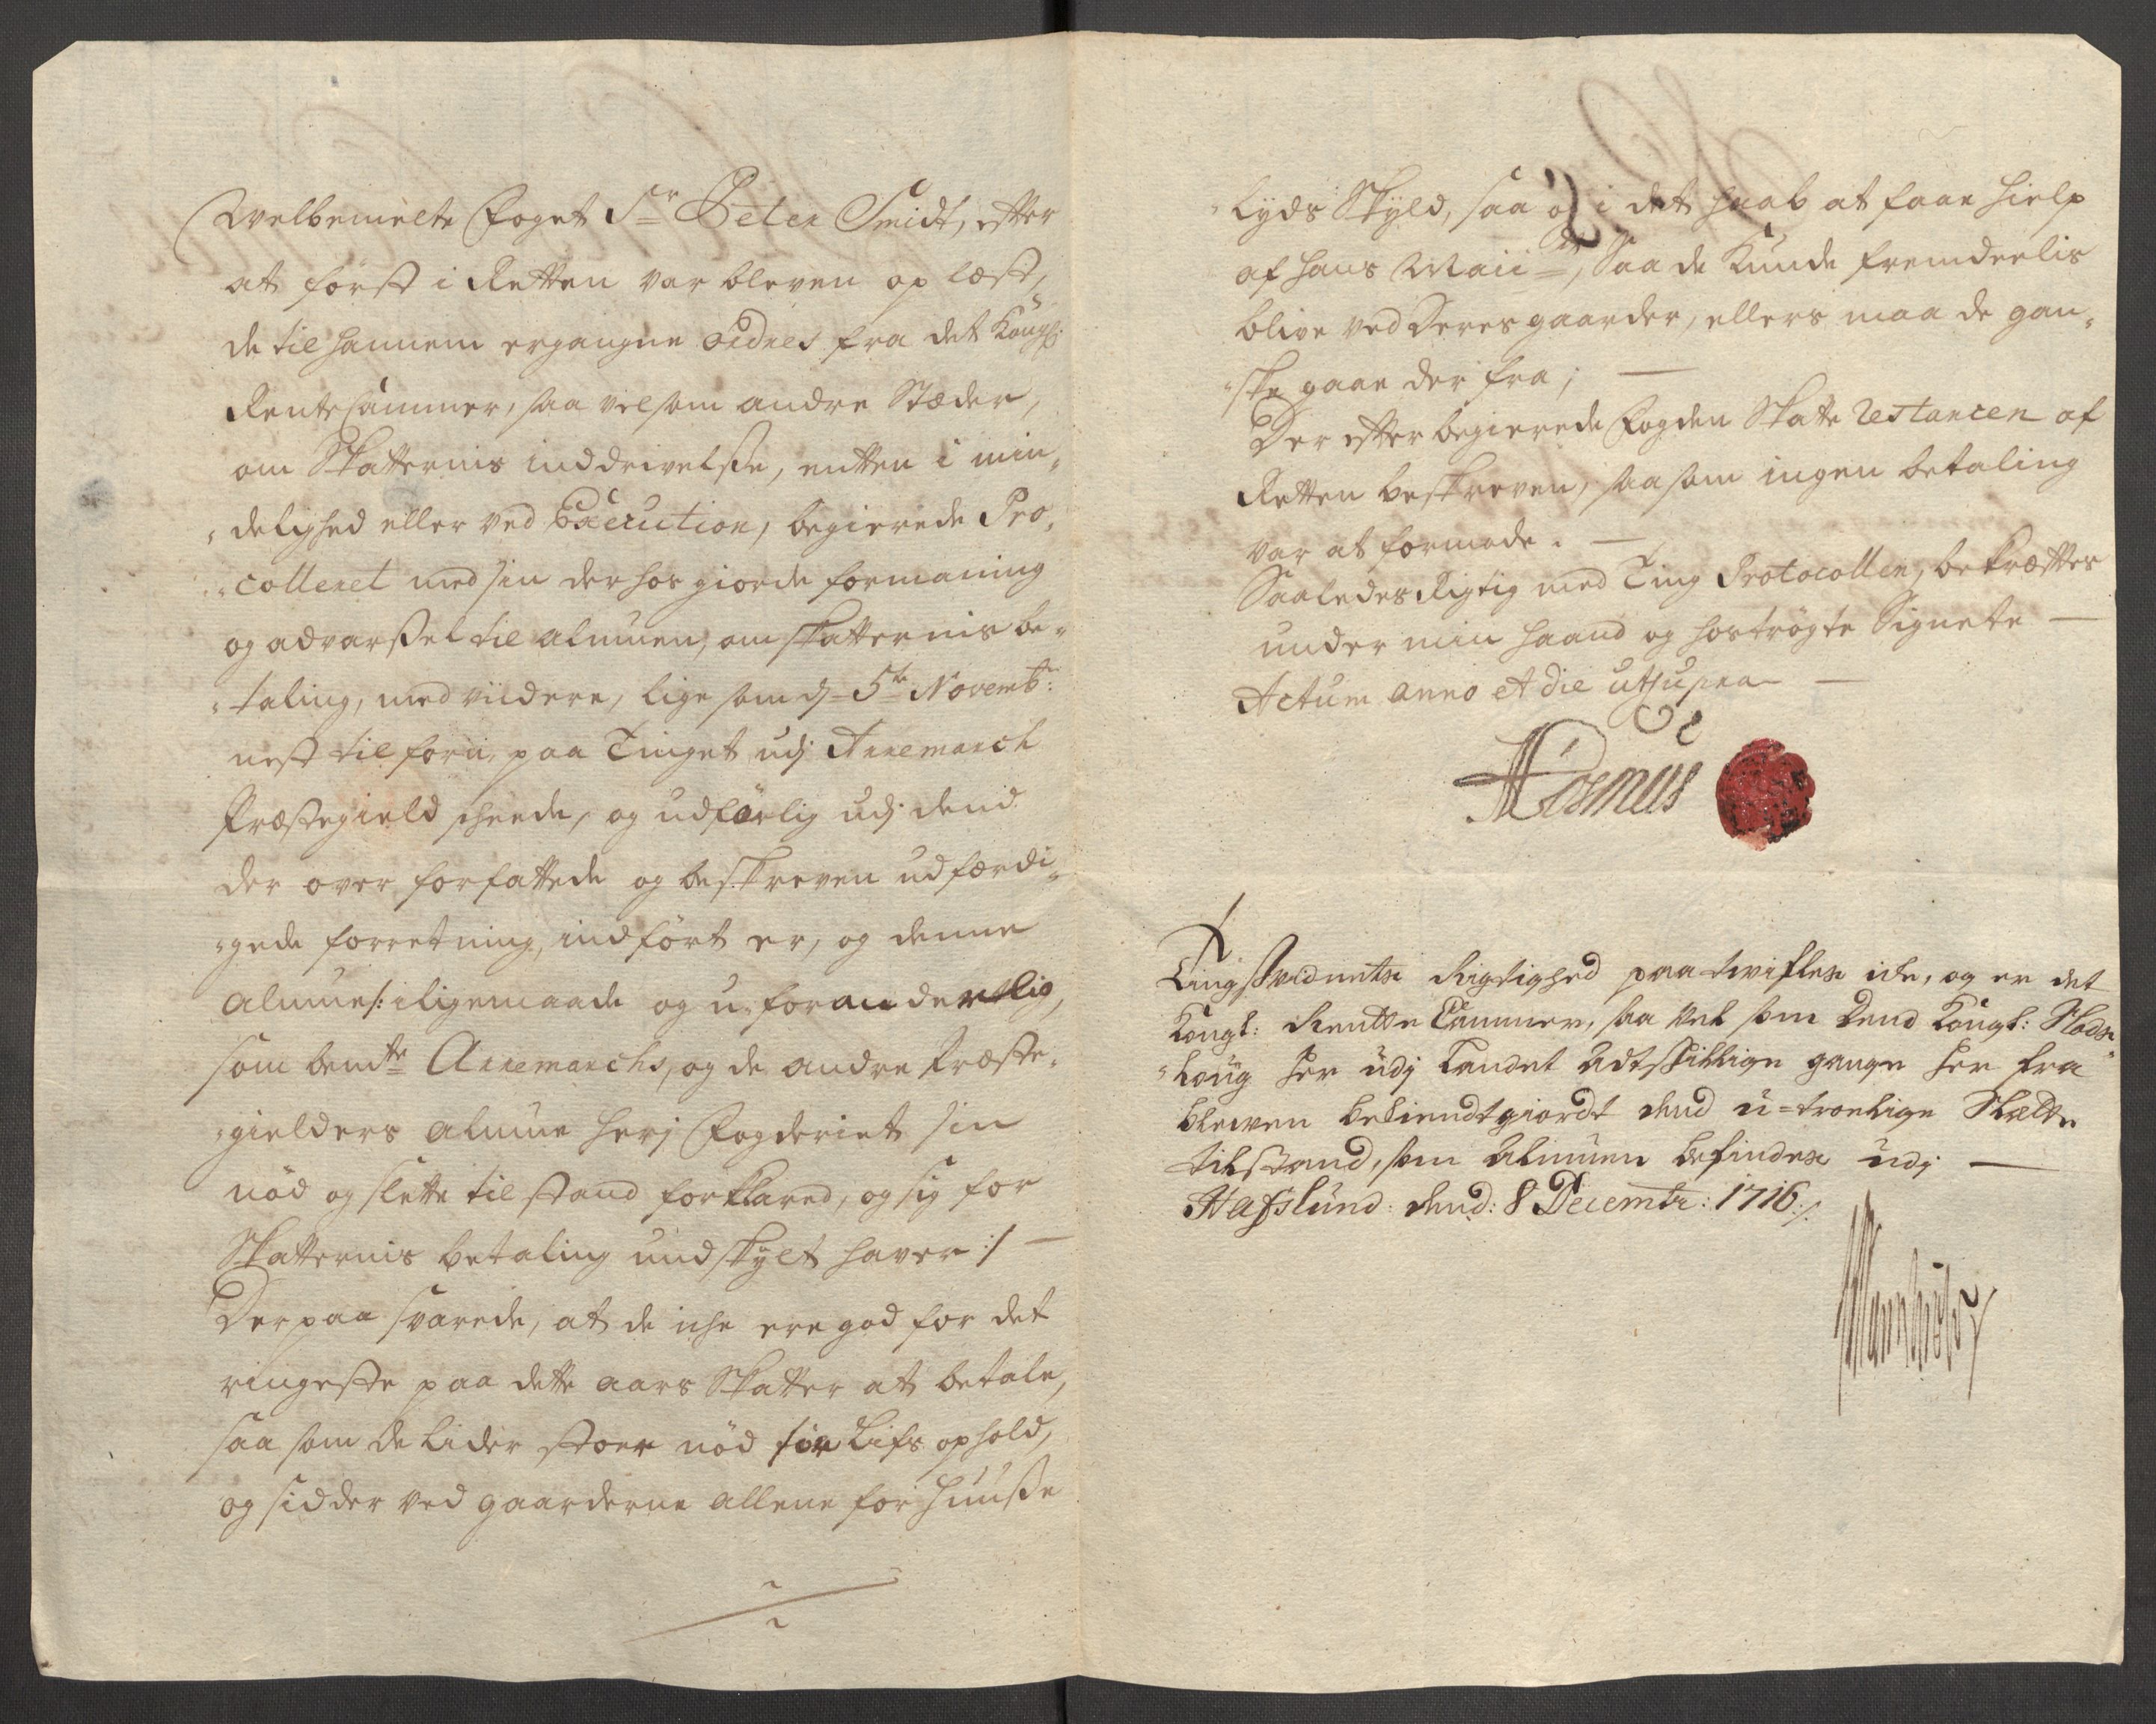 Welbemelte Foget Sr Peter Smidt, efter
at först i Retten var bleven op læst,
de til hannem ergangne ordres fra det Kongl:
Rentecammer, saa vel som andre Stæder,
om Skatternis inddrivelsse, enten i min,
"delighed eller ved Execution, begierede Pro,
"colleret med sin derhos giorde formaning
og advarssel til almuen, om skatternis be-
"taling, med viidere, lige som d. 5te Novemb:
nest tilforn, paa Tinget udj Arremarch
Præstegield scheede, og udförlig udj dend
der over forfattede og beskreven udfærdi,
"gede forretning, indfört er, og denne
almue /: iligemaade og u-foranderlig,
som bemte Arremarchs, og de andre Præste-
"gielders almue herj Fogderiet sin
nöd og slette tilstand forklared, og sig for
Skatternis betaling undskylt haver :/ —
Der paa svarede, at de iche ere god for det
ringeste paa dette aars Skatter at betale,
saa som de lider stoer nöd for Lifs ophold,
og sidder ved gaarderne allene for huusse
"lyds Skyld, saa og i det haab at faae hielp
af hans Maiitt, saa de kunde fremdeelis
blive ved deres gaarder, ellers maa de gan,
"ske gaae der fra; —
Der efter begierede Fogden Skatte Restancen af
Retten beskreven, saa som ingen betaling
var at formode. —
Saaledes Rigtig med Ting Protocollen, bekræfter
under min haand og hoströgte Signete —
Actum anno et die utsupra —
Tingsvidnets Rigtighed paatvifles iche, og er det
Kongl: Rentte Cammer, saa vel som dend Kongl: Slods
"Loug her udj Landet adtskillige gange her fra
blewen bekiendtgiordt dend u-troelige Slette
tilstand, som Almuen befindes udj —
Hafslund: dend: 8 Decembr: 1716 ./.